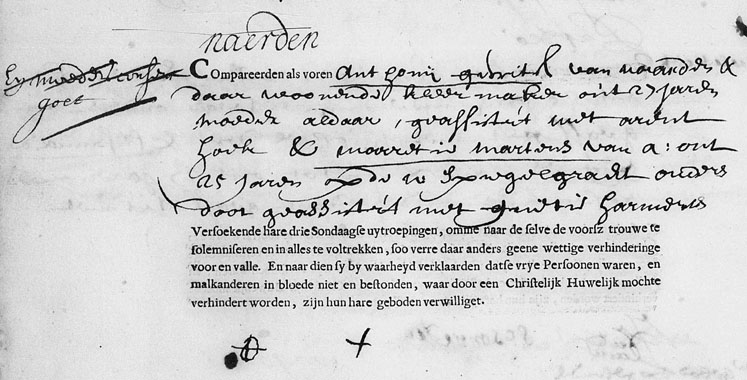 naerden
Sy moeders consent
goet
Compareerden als voren Anthoni gabriel van naarden &
daar woonende kleermaker out 27 jaren
moeder aldaar, geassisteert met arent
hoek & marretie martens van a: out
25 jaren op de Spiegelgracht ouders
doot geassisteert met harmens
Versoekende hare drie Sondaagse uytroepingen, omme naar de selve de voorsz trouwe te
solemniseren en in alles te voltrekken, soo verre daar anders geene wettige verhinderinge
voor en valle. En naar dien sy by waarheyd verklaarden datse vrye Persoonen waren, en
malkanderen in bloede niet en bestonden, waar door een Christelijk Huwelijk mochte
verhindert worden, zijn hun hare geboden verwilliget.